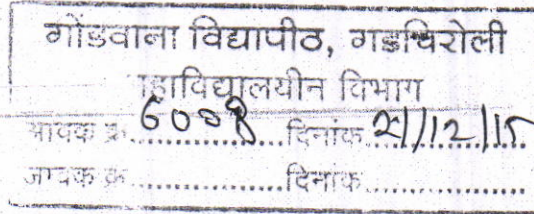 गोंडवाना विद्यापीठ, गडचिरोली
महाविद्यालयीन विभाग
आवक क्र. ............ दिनांक ......./12/15
जावक क्र. ............ दिनांक ............